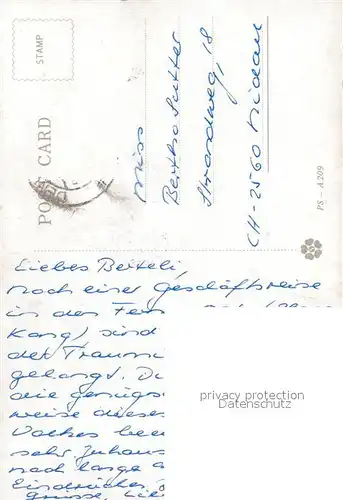 STAMP
POST CARD
Miss
Bertha Sutter
Strandweg, 18
CH-2560 Nidau
PS - A 209
Liebes Berteli,
nach einer Geschäftsreise
in den Fern
Kong) sind
der Traum
gelangt. Du
die genügs
weise dieses
Volkes
sehr Zuhaus
noch lange
Eindrücke.
Grüsse.
privacy protection
Datenschutz